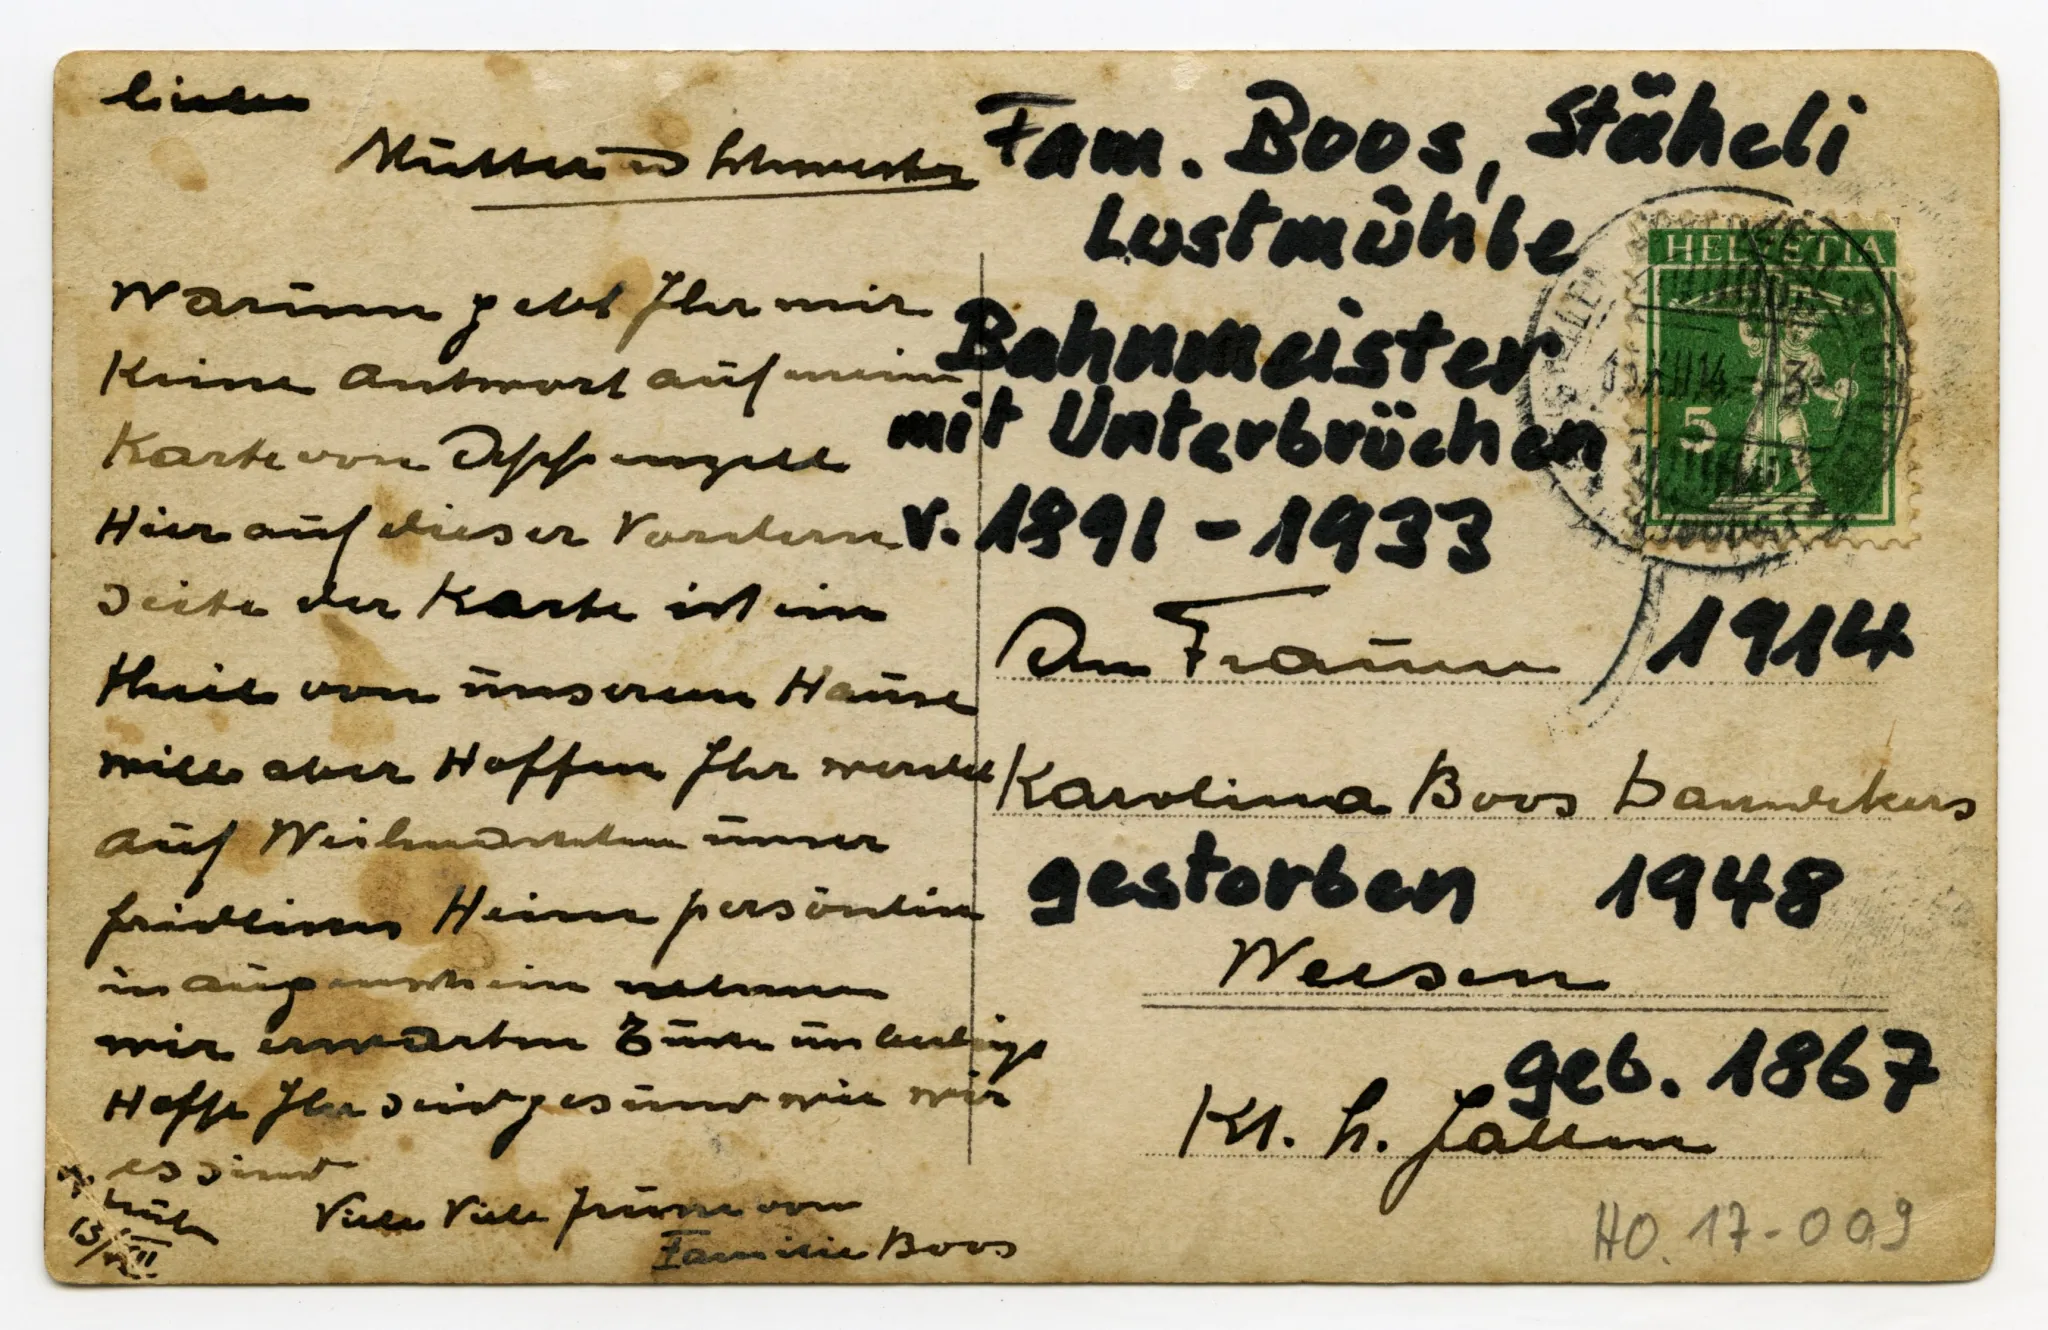 liebe
Mutter u Schwester
Warum gebt Ihr mir
Keine Antwort auf meine
Karte von Appenzell
Hier auf dieser Vordern
seite der Karte ist ein
theil von unserem Hause
will aber Hoffen Ihr werdet
auf Weihnachten unser
friedliches Heim persönlich
in augenschein nehmen
wir erwarten Euch unbedingt
Hoffe Ihr seid gesund wie wir
es sind
Viele Viele Grüsse von
Familie Boos
13/XII
Fam. Boos, Stäheli
Lustmühle
Bahnmeister
mit Unterbrüchen
v. 1891 - 1933
HELVETIA
5
1914
An Frauen
Karolina Boos
gestorben 1948
Weesen
geb. 1867
Kt. St. Gallen
HO. 17-009